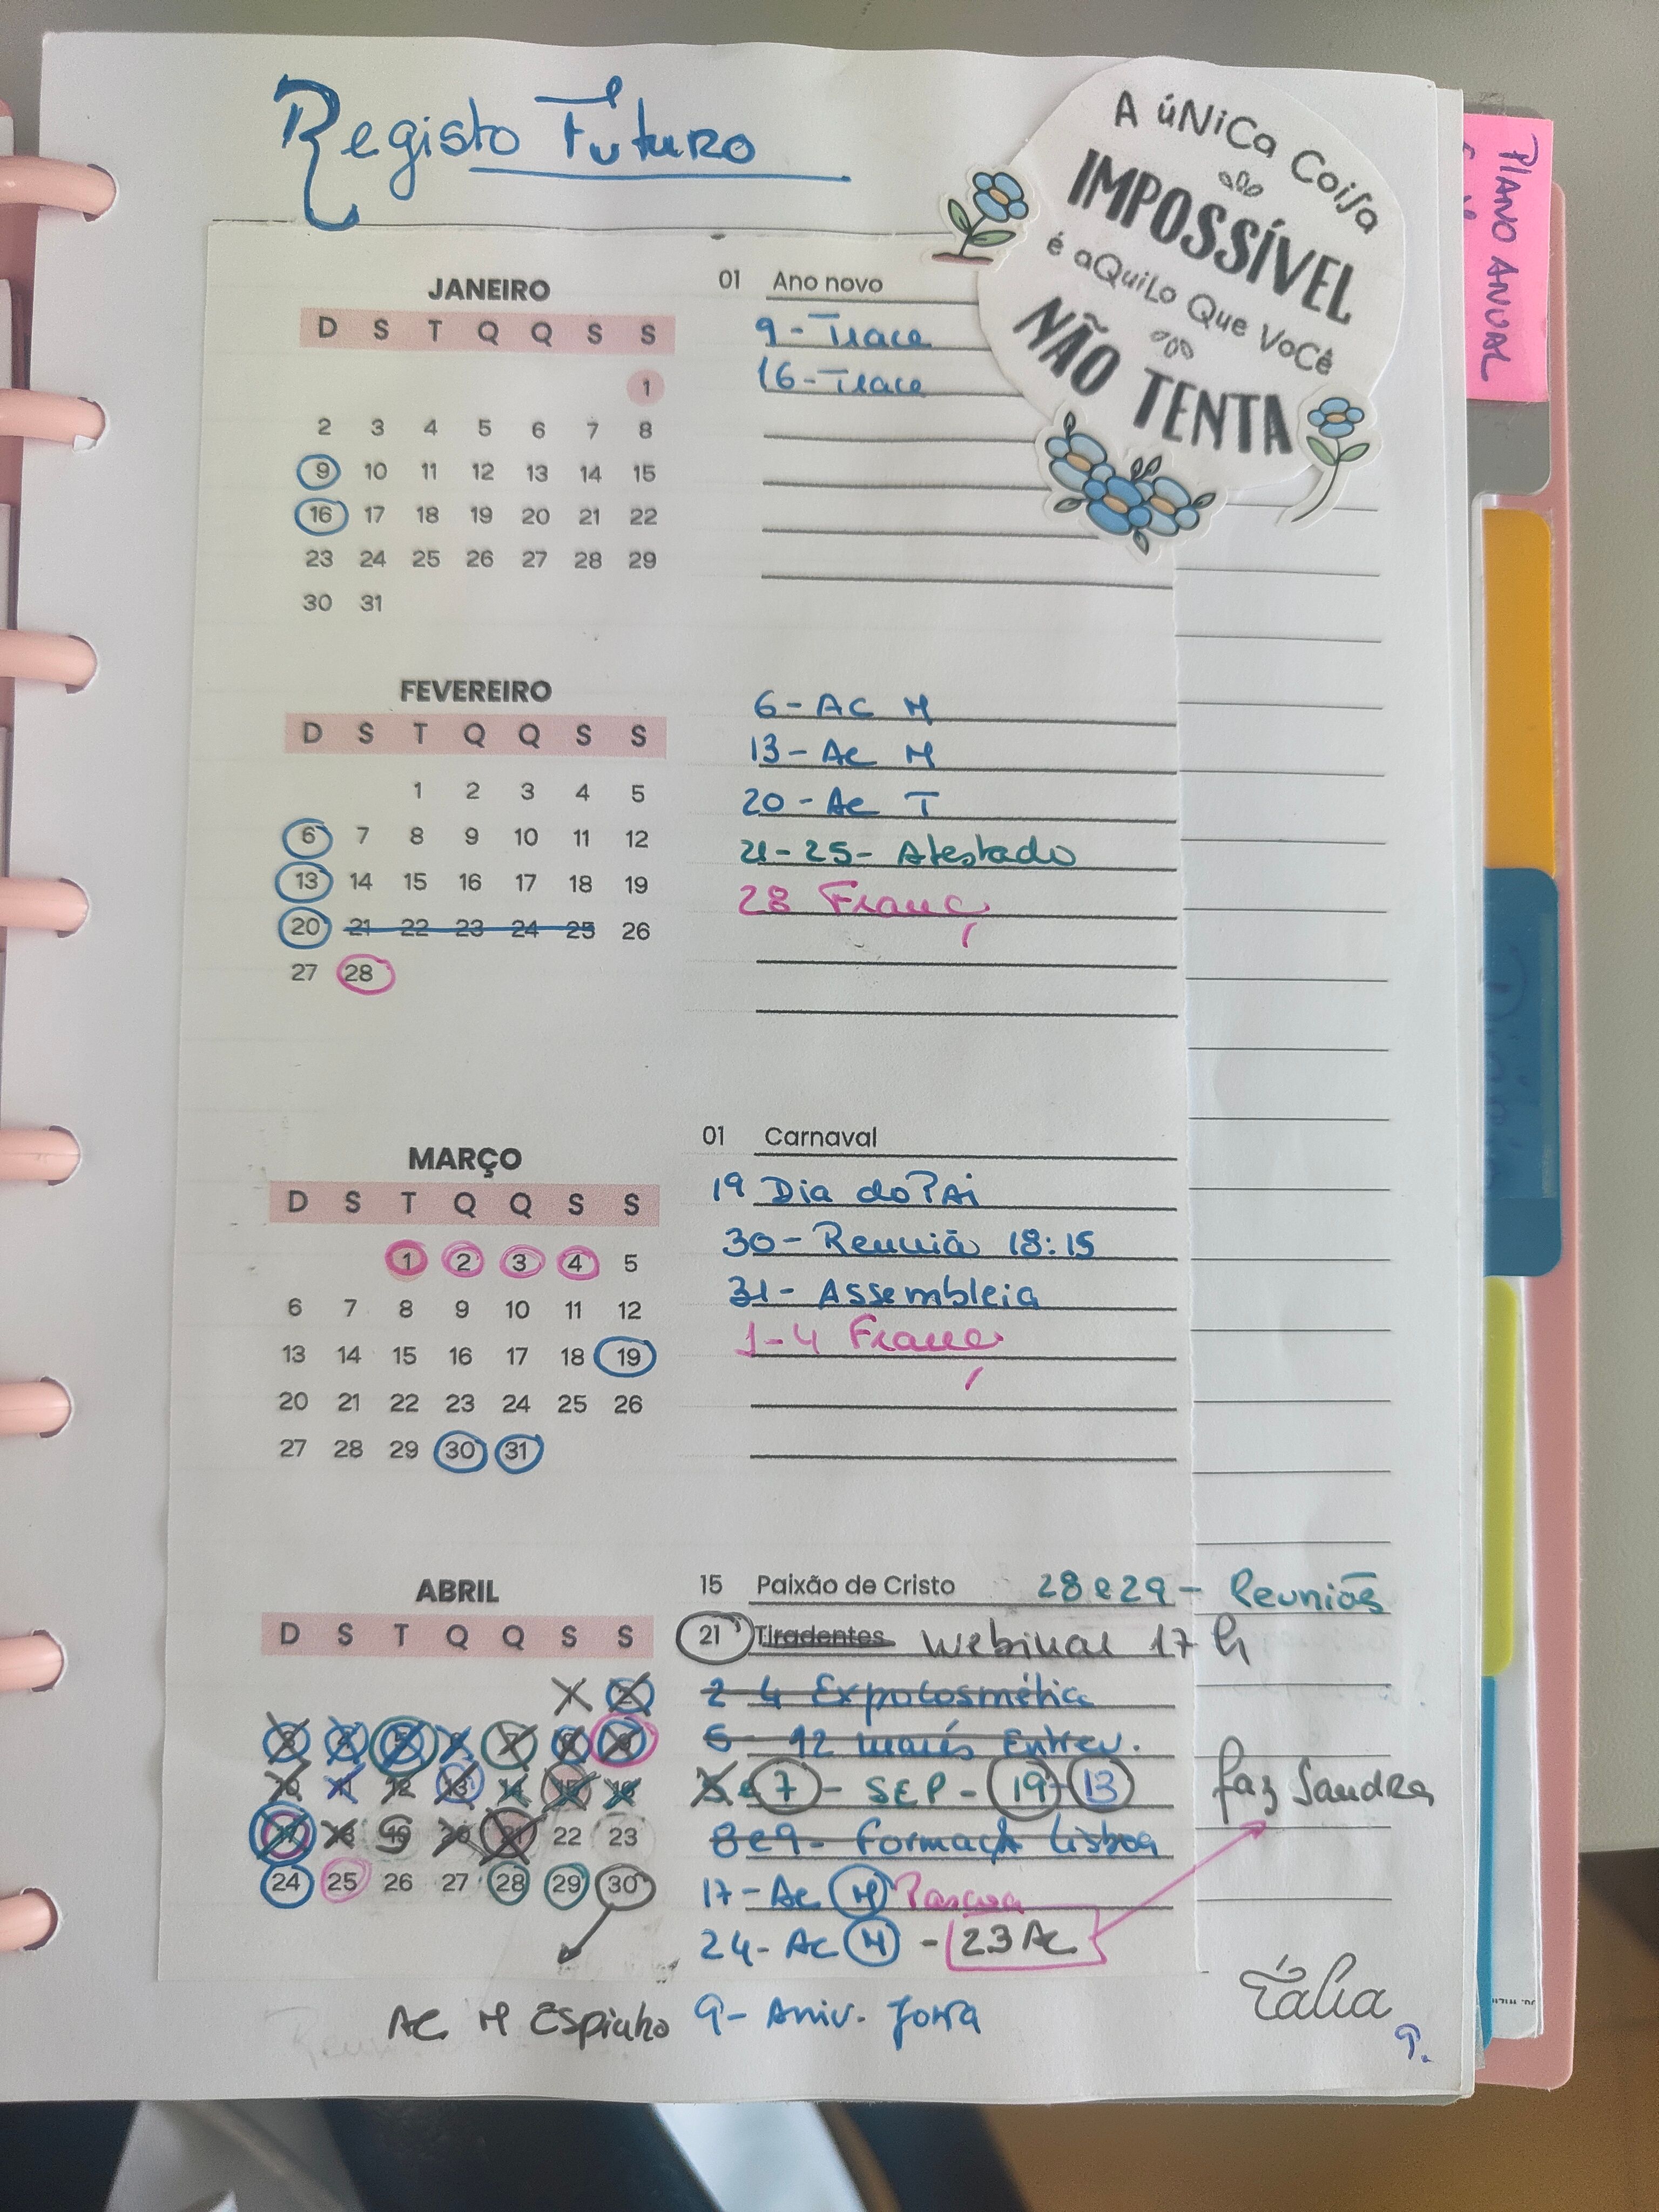 Registo Futuro
A úNiCa Coisa
IMPOSSÍVEL
é aQuiLo Que VoCê
NÃO TENTA
PLANO ANUAL
JANEIRO
D S T Q Q S S
1
2 3 4 5 6 7 8
9 10 11 12 13 14 15
16 17 18 19 20 21 22
23 24 25 26 27 28 29
30 31
01 Ano novo
9-
16-
FEVEREIRO
D S T Q Q S S
1 2 3 4 5
6 7 8 9 10 11 12
13 14 15 16 17 18 19
20 21 22 23 24 25 26
27 28
6- AC M
13- AC M
20- AC T
21-25- Atestado
28
MARÇO
D S T Q Q S S
1 2 3 4 5
6 7 8 9 10 11 12
13 14 15 16 17 18 19
20 21 22 23 24 25 26
27 28 29 30 31
01 Carnaval
19 Dia do PAi
30- Reunião 18:15
31- Assembleia
1-4
ABRIL
D S T Q Q S S
2
5 7 9
10 11 12 13 14 15 16
18 19 20 21 22 23
24 25 26 27 28 29 30
15 Paixão de Cristo 28 e 29 - Reuniões
21 Tiradentes Webinar 17 h
2 4 Expocosmética
12 Entrev.
7 - SEP - 19 13
8 e 9- Formaçã Lisboa
faz Sandra
17- AC M Pascoa
24- AC M - 23 AC
AC M Espinho
9- Aniv.
Tália
9.